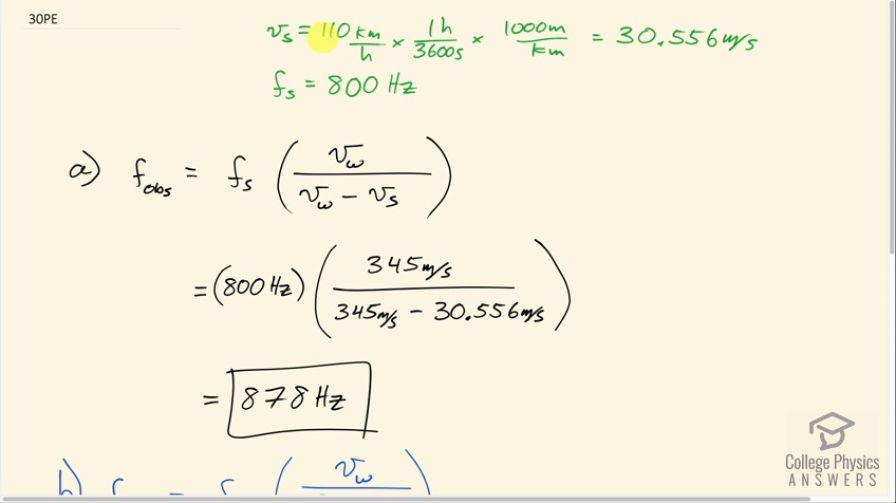 30PE
v_s = 110 km/h × 1h/3600s × 1000m/km = 30.556 m/s
f_s = 800 Hz
a) f_obs = f_s (v_w / (v_w − v_s))
= (800 Hz) (345 m/s / (345 m/s − 30.556 m/s))
= 878 Hz
b) = (v_w
College Physics
ANSWERS